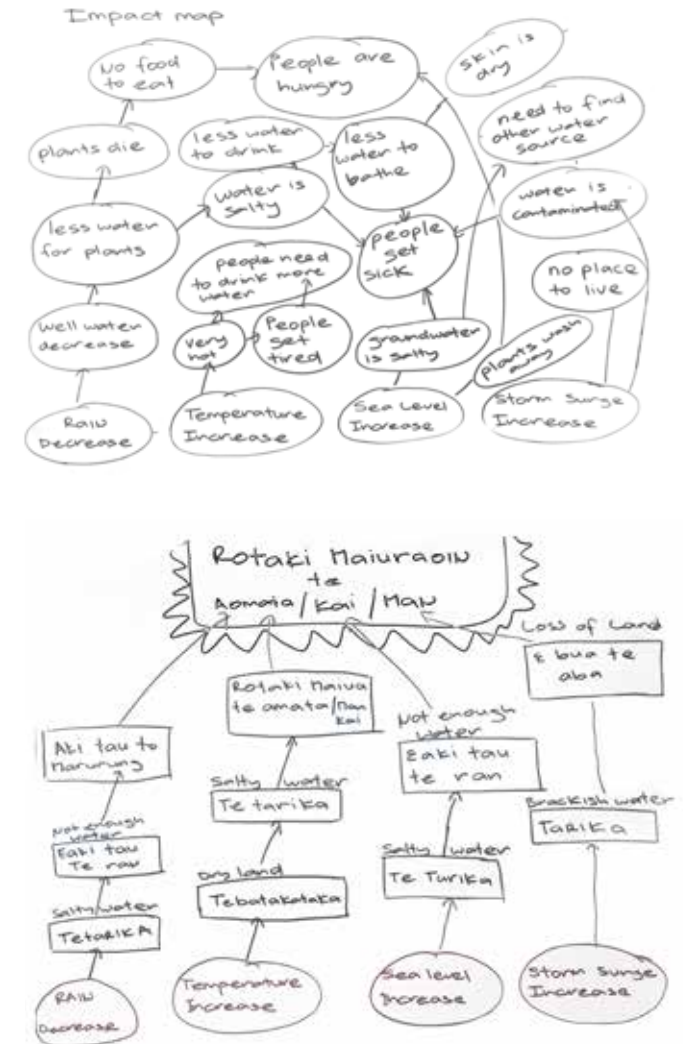 Impact map
No food
to eat
People are
hungry
skin is
dry
need to find
other water
source
plants die
less water
to drink
less
water to
bathe
water is
salty
water is
contaminated
less water
for plants
people
get
sick
people need
to drink more
water
no place
to live
well water
decrease
very
hot
People
get
tired
groundwater
is salty
plants wash
away
RAIN
Decrease
Temperature
Increase
Sea Level
Increase
Storm Surge
Increase
Rotaki Maiuraoin
te
Aomata/Kai/Man
Loss of Land
E bua te
aba
Rotaki Maiua
te amata/Man
Kai
Not enough
water
Eaki tau
te ran
Aki tau te
Marurung
Salty water
Te tarika
Brackish water
TARIKA
Not enough
water
Eaki tau
Te ran
Dry land
Tebatakataka
Salty water
Te Turika
Salty water
TetaRIKA
RAIN
Decrease
Temperature
Increase
Sea level
Increase
Storm Surge
Increase